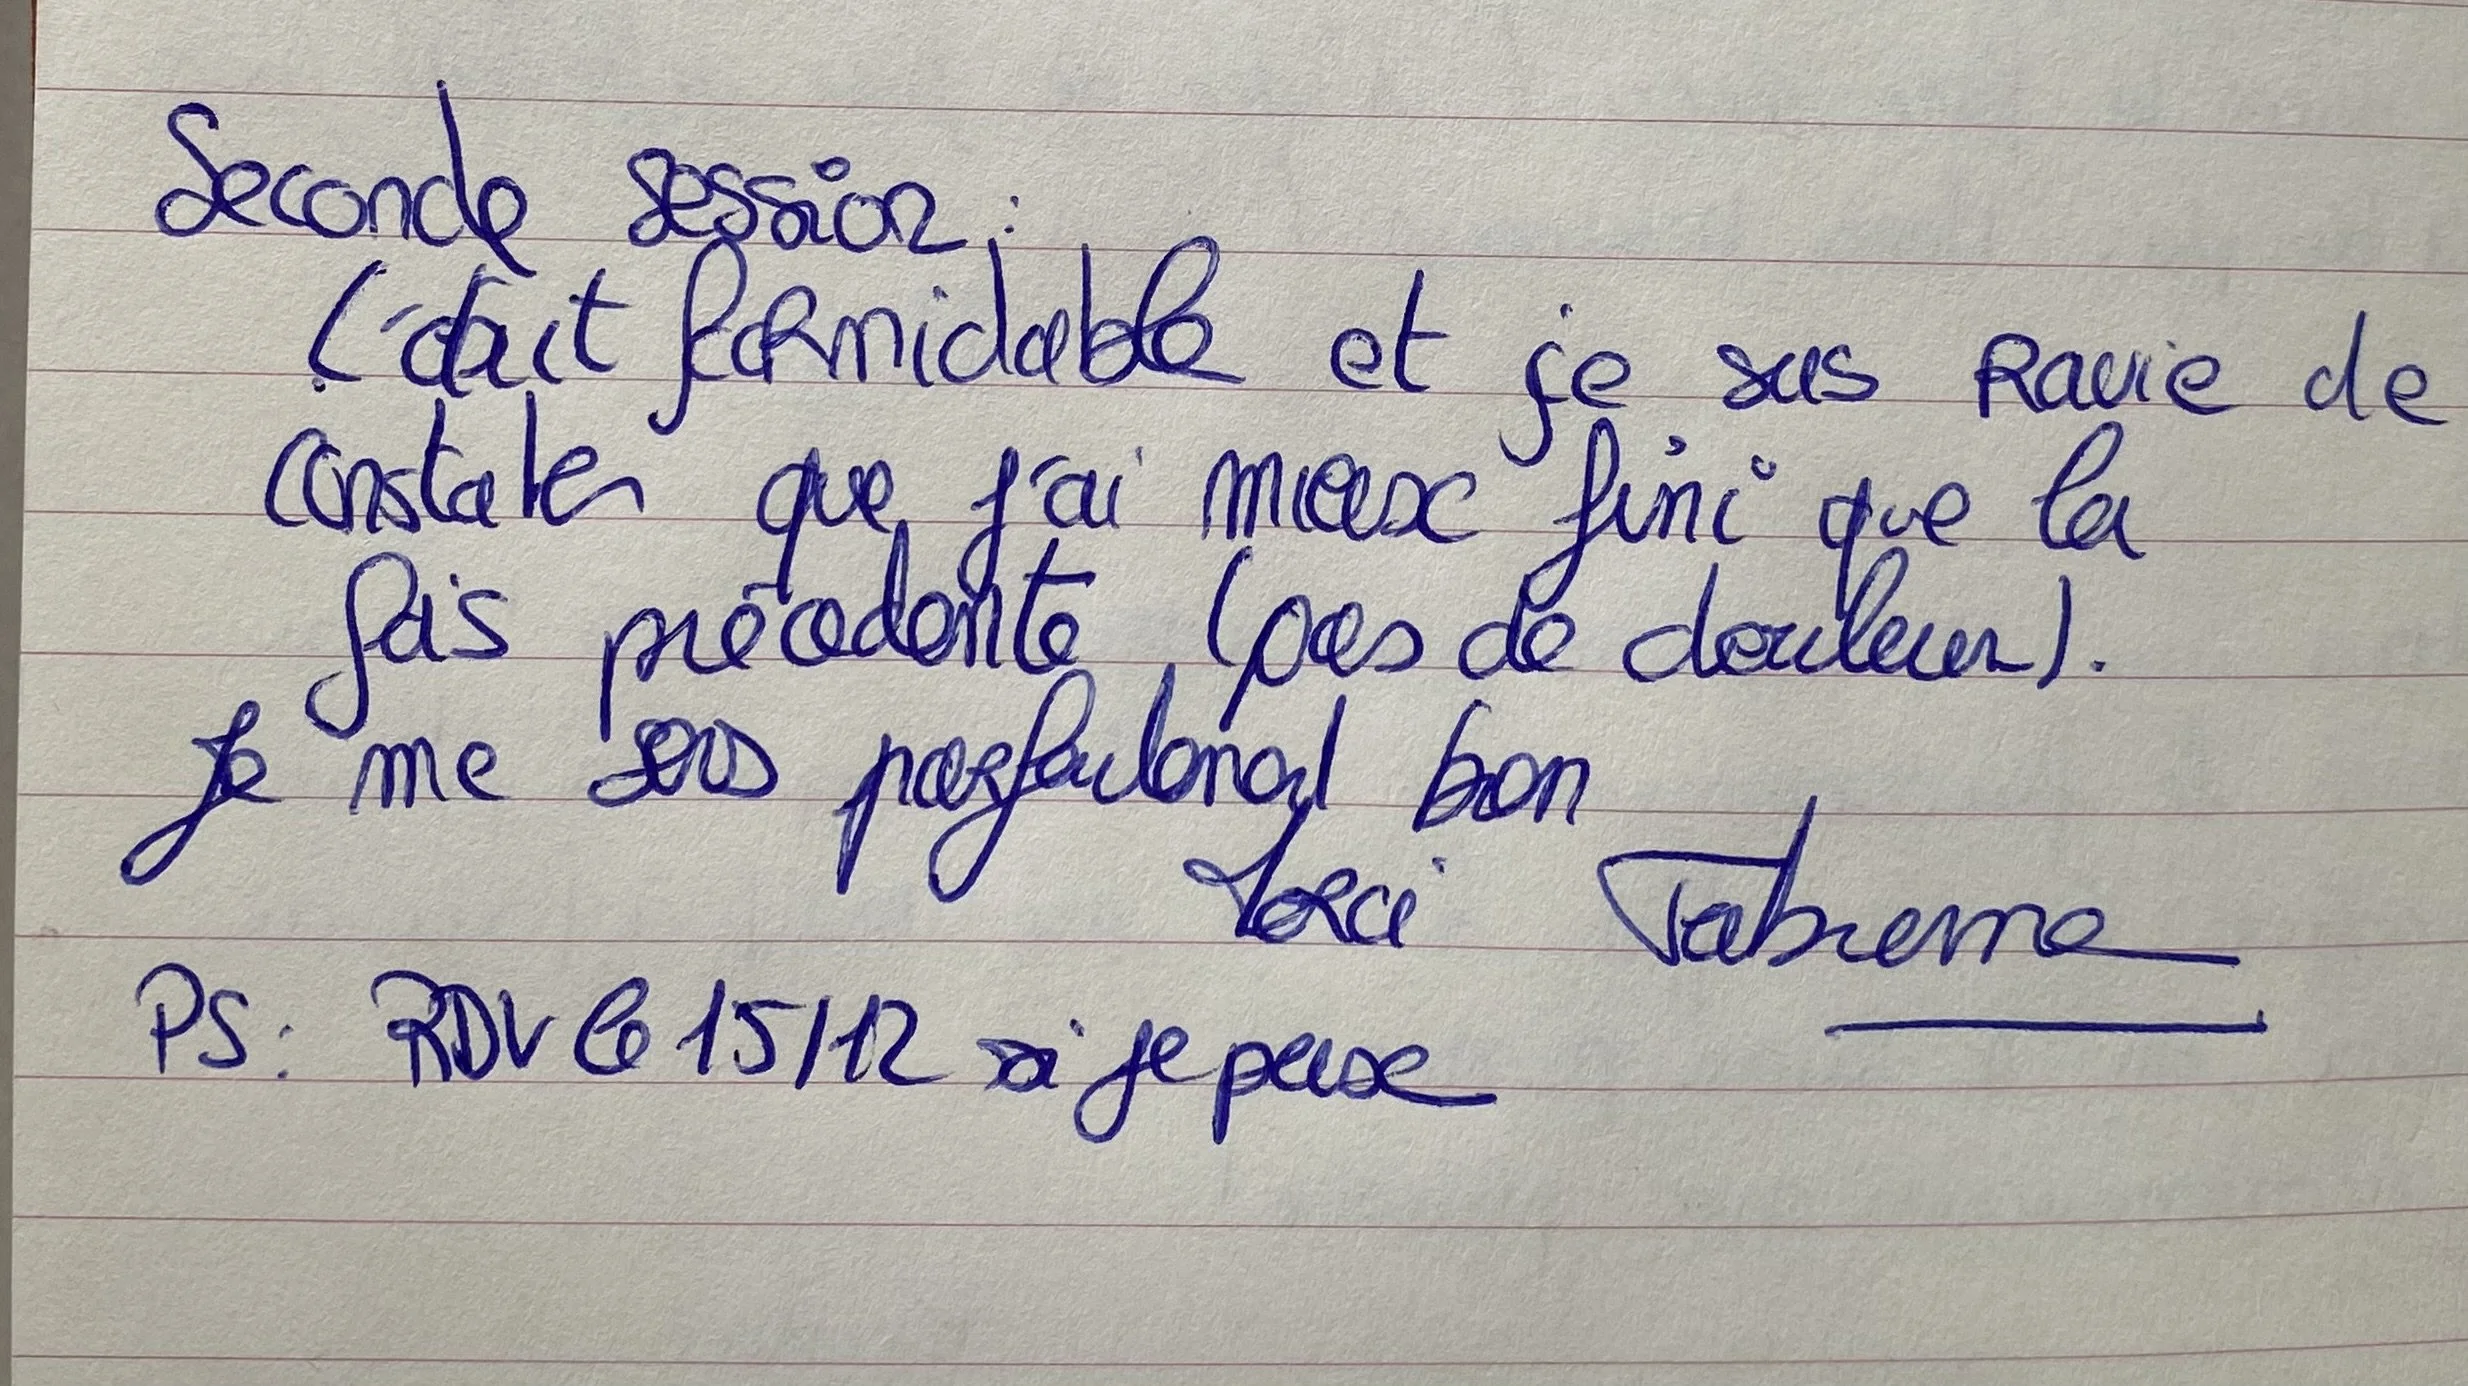 Seconde session :
C'était formidable et je suis ravie de
constater que j'ai mieux fini que la
fois précédente (pas de douleur).
Je me sens parfaitement bien
Merci
PS : RDV le 15/12 si je peux